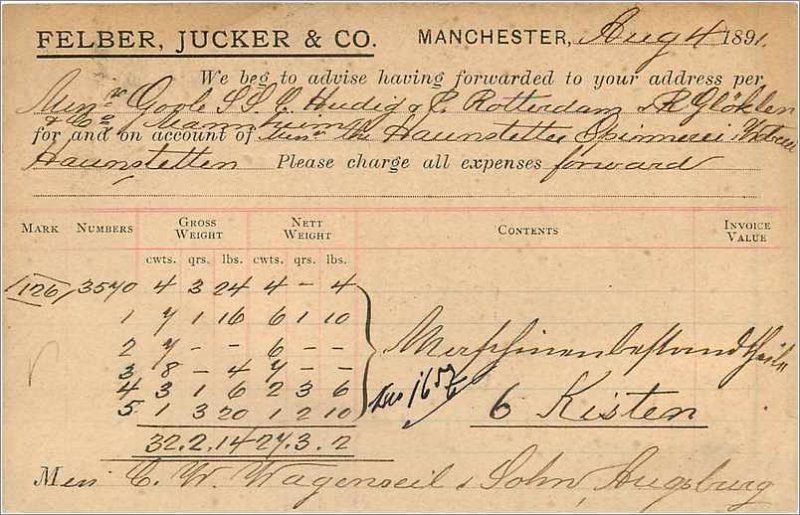 FELBER, JUCKER & CO. MANCHESTER, Aug 4 1891.
We beg to advise having forwarded to your address per
Goole S. S. C. Hudig & P. Rotterdam & R Glöklen
& Co Mannheim
for and on account of the Haunstetter Spinnerei
Haunstetten Please charge all expenses forward
MARK NUMBERS GROSS WEIGHT NETT WEIGHT CONTENTS INVOICE VALUE
cwts. qrs. lbs. cwts. qrs. lbs.
126 3570 4 3 24 4 - 4
1 7 1 16 6 1 10
2 7 - - 6 - - Maschinenbestandtheile
3 8 - 4 7 - -
4 3 1 6 2 3 6
5 1 3 20 1 2 10 6 Kisten
32. 2. 14 27. 3. 2
Mess C. W. Wagenseil & Sohn, Augsburg